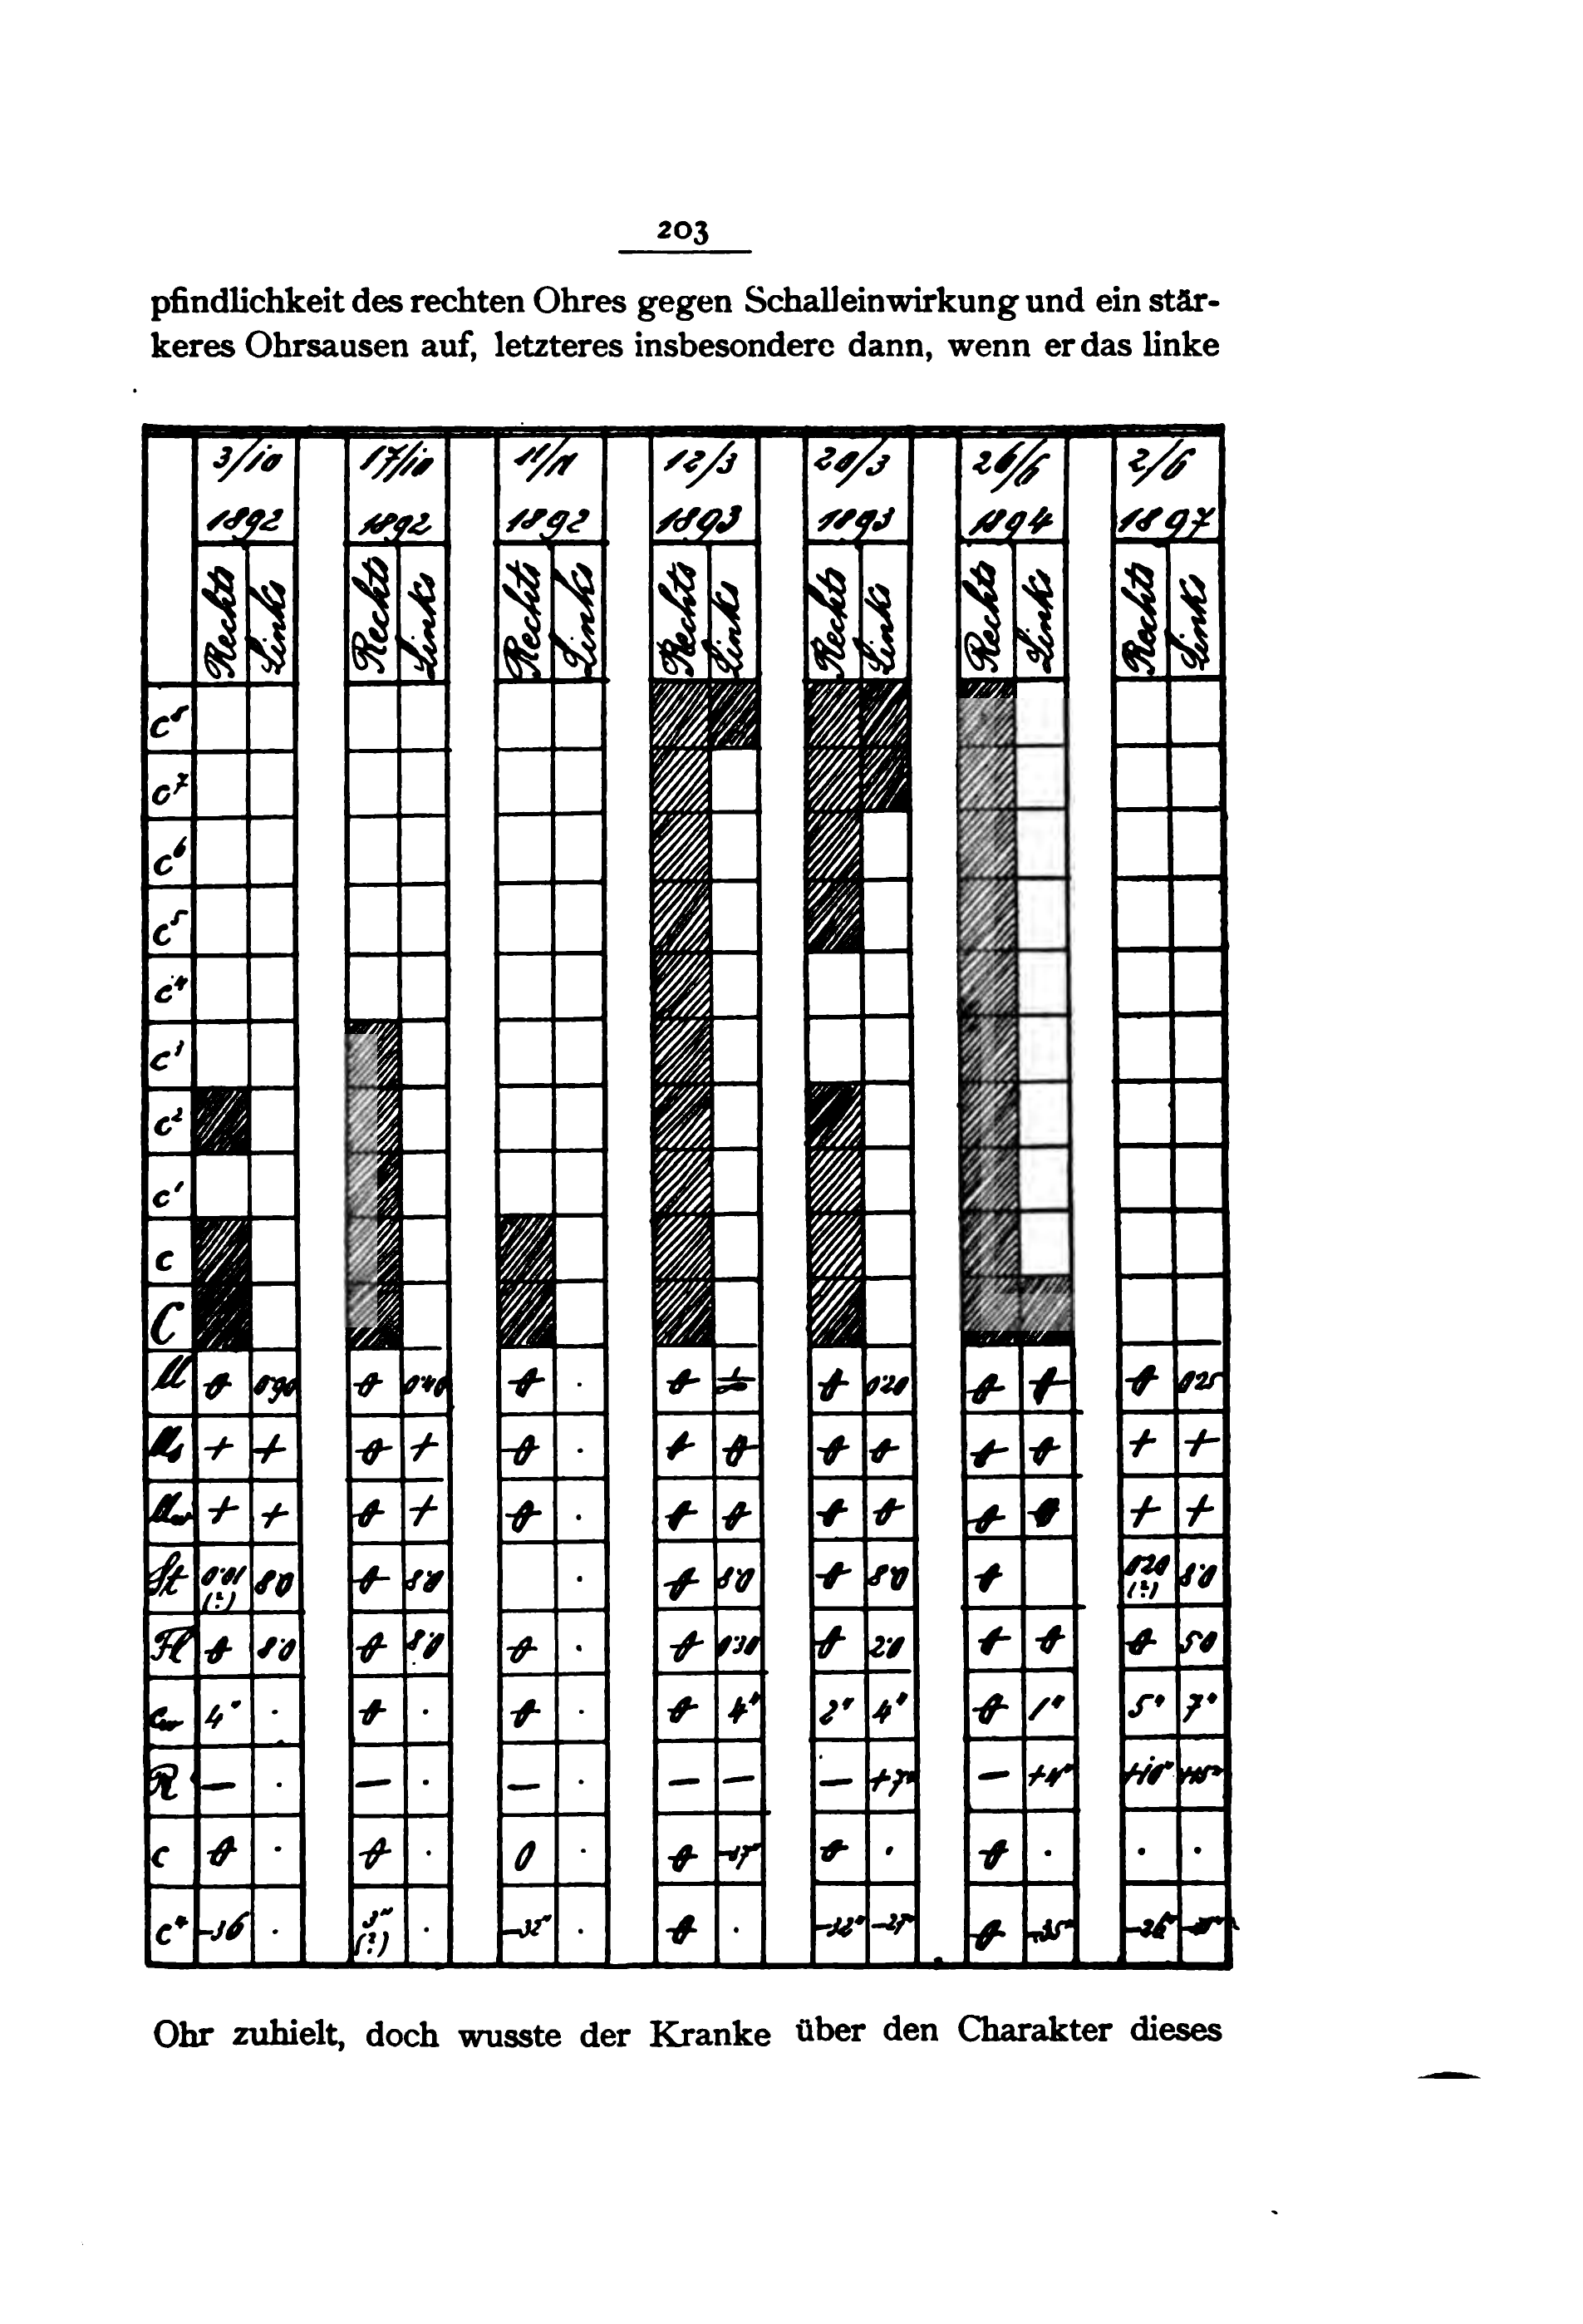 203
pfindlichkeit des rechten Ohres gegen Schalleinwirkung und ein stär-
keres Ohrsausen auf, letzteres insbesondere dann, wenn er das linke
3/10 17/10 11/11 12/3 20/3 26/6 2/6
1892 1892 1892 1893 1893 1894 1897
Rechts Links Rechts Links Rechts Links Rechts Links Rechts Links Rechts Links Rechts Links
c⁸
c⁷
c⁶
c⁵
c⁴
c³
c²
c'
c
C
U θ 0·90 θ 0·40 θ · θ θ 0·20 θ θ θ 0·25
Us + + θ + θ · θ θ θ θ θ θ + +
Uw + + θ + θ · θ θ θ θ θ θ + +
St 0·01 (?) 8·0 θ 8·0 · θ 8·0 θ 8·0 θ 0·20 (?) 8·0
Fl θ 8·0 θ 8·0 θ · θ 0·30 θ 2·0 θ θ θ 5·0
cw 4" · θ · θ · θ 4" 2" 4" θ 1" 5" 7"
R — · — · — · — — — +7" — +4" +10" +15"
c θ · θ · 0 · θ -17" θ · θ · · ·
c⁴ -36 · 3" (?) · -32" · θ · -32" -27" θ -35" -26"
Ohr zuhielt, doch wusste der Kranke über den Charakter dieses